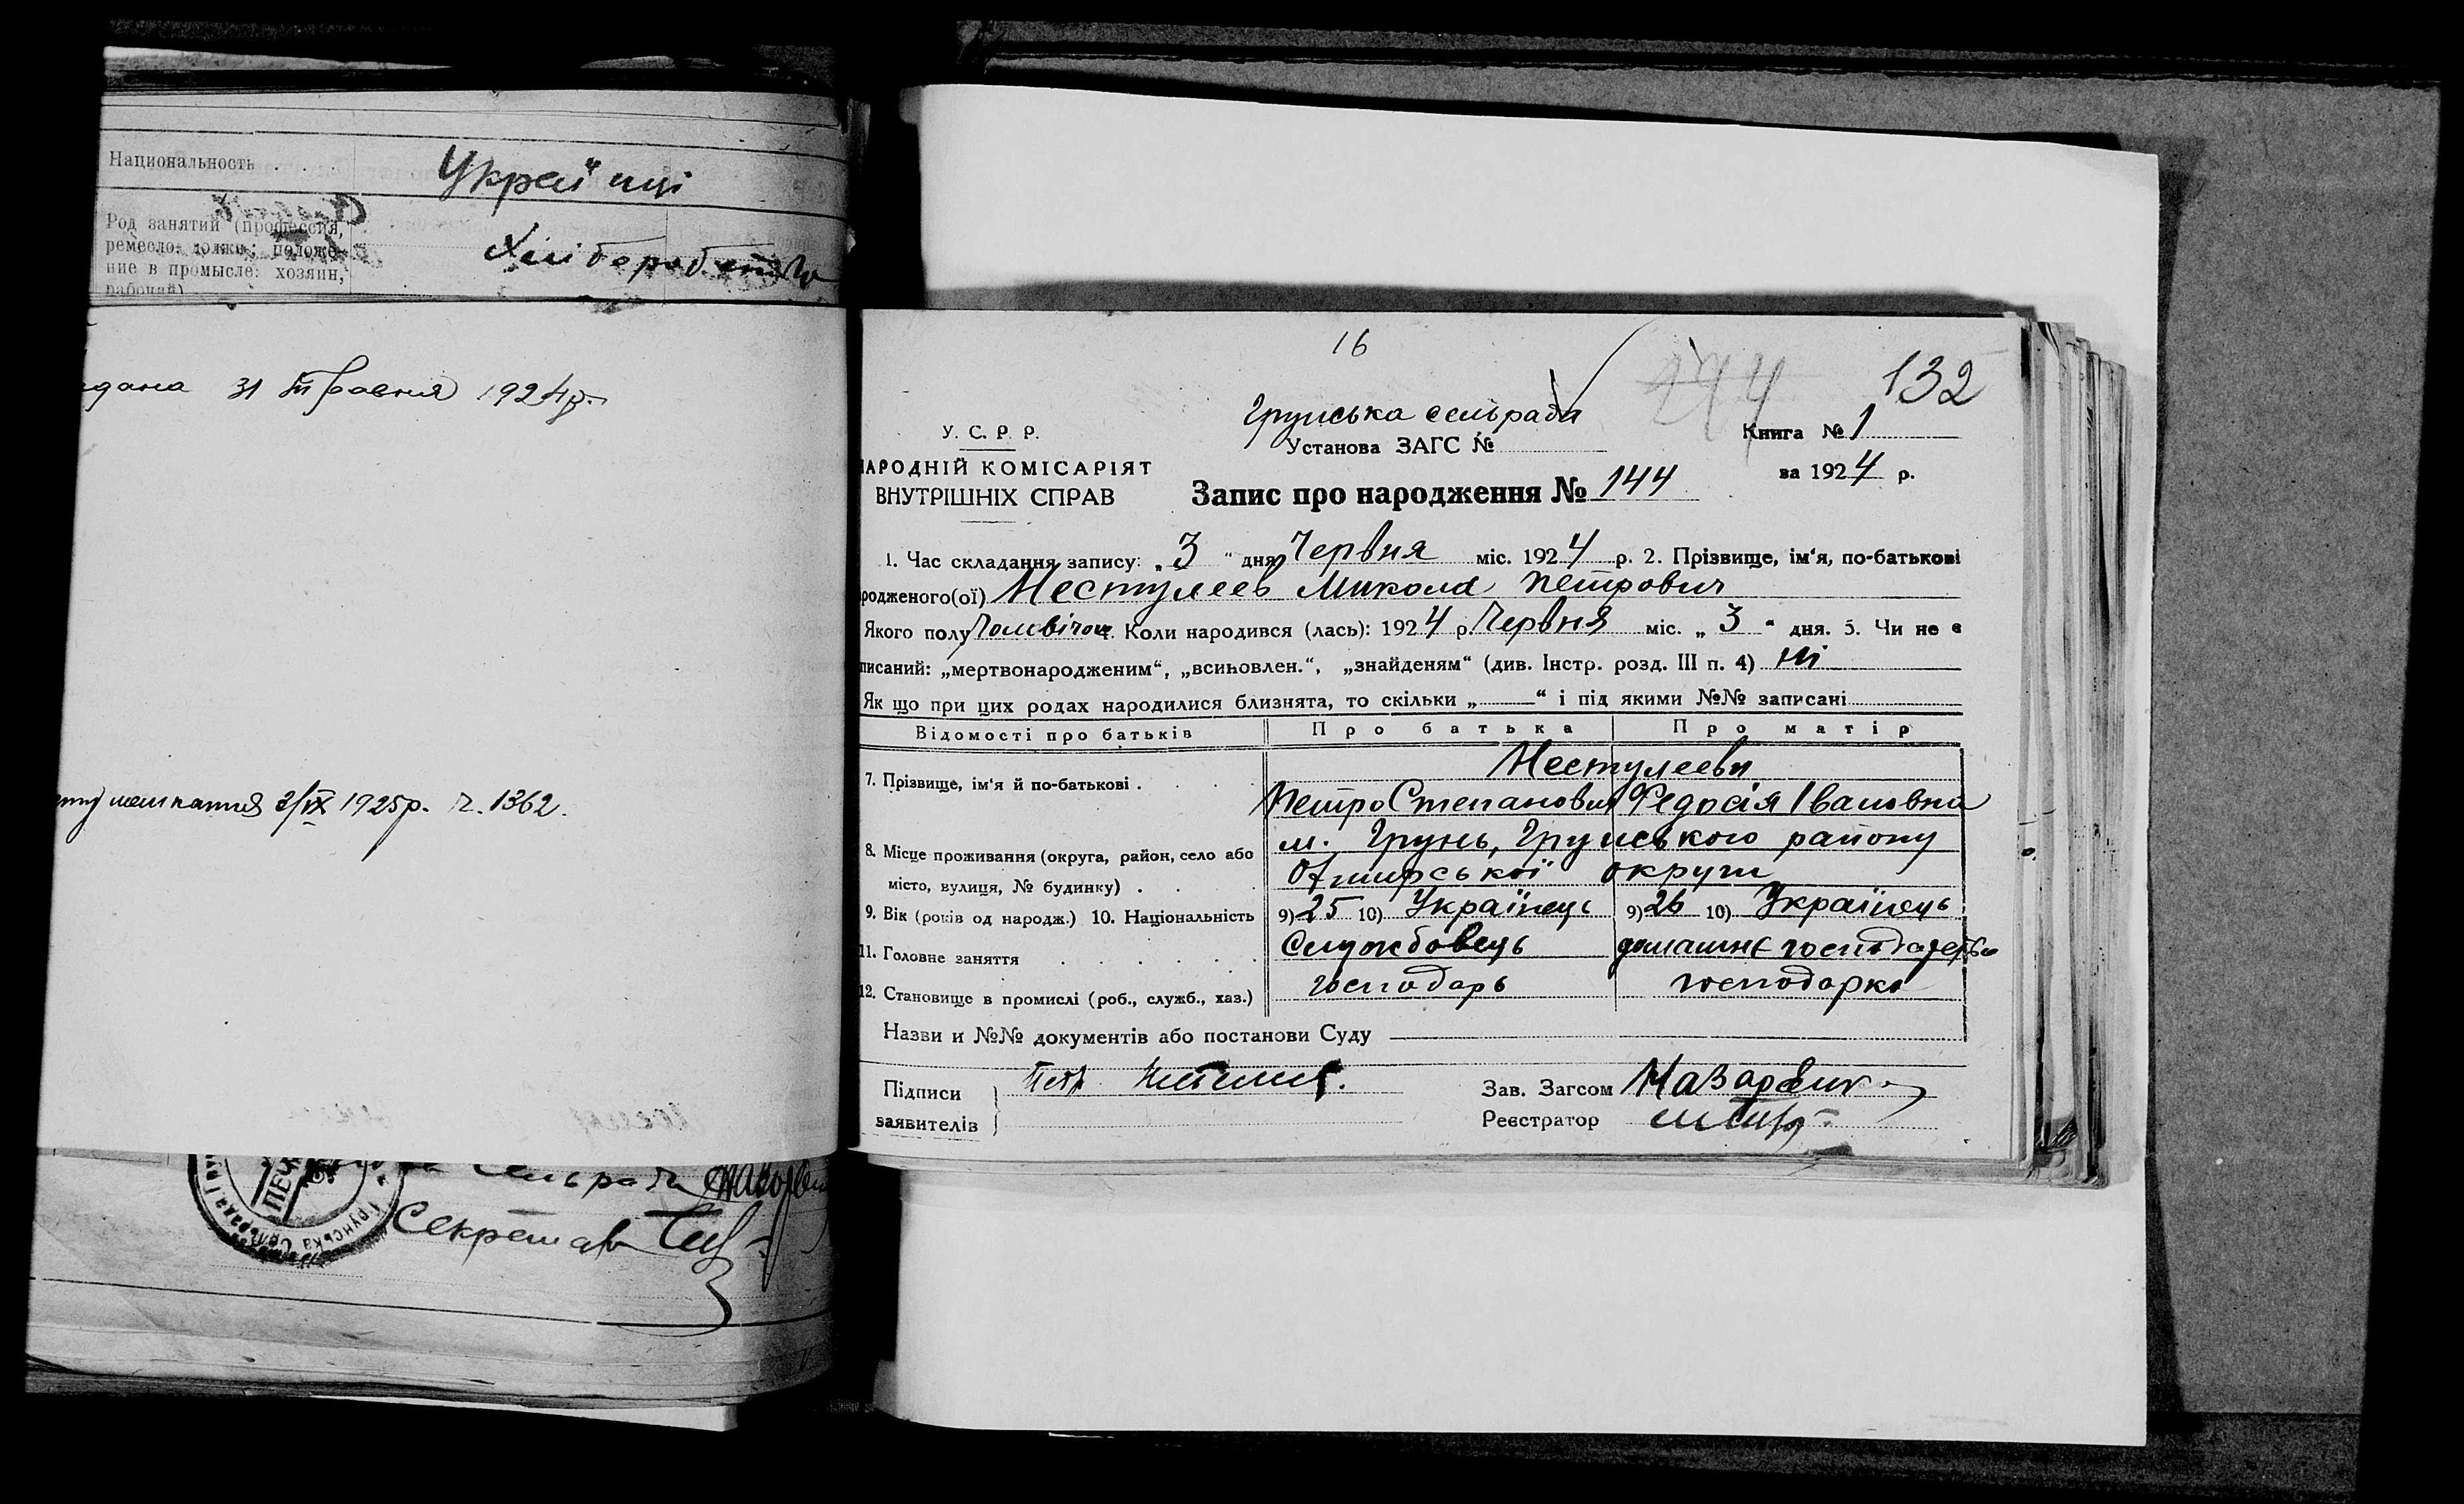 Национальность
Українці
Род занятий (профессия,
ремесло: должн.; положе-
ние в промысле: хозяин,
рабочий)
Хліборобство
31 Травня 1924 р.
мешкання 3/IX 1925 р. ч. 1362.
Сельради
Секретар
ПЕЧ
Грунська Сель
16
244
132
Грунська сельрада
У. С. Р. Р.
Установа ЗАГС №
Книга № 1
НАРОДНІЙ КОМІСАРІЯТ
ВНУТРІШНІХ СПРАВ
за 1924 р.
Запис про народження № 144
1. Час складання запису: „ 3 " дня Червня міс. 1924 р. 2. Прізвище, ім'я, по-батькові
родженого(ої) Нестулеев Микола Петрович
Якого полу Чоловічого 4. Коли народився (лась): 1924 р. Червня міс. „ 3 " дня. 5. Чи не є
писаний: „мертвонародженим", „всиновлен.", „знайденям" (див. Інстр. розд. III п. 4) Ні
Як що при цих родах народилися близнята, то скільки „——" і під якими №№ записані
Відомості про батьків Про батька Про матір
7. Прізвище, ім'я й по-батькові
Нестулееви
Петро Степанович Федосія Івановна
8. Місце проживання (округа, район, село або
місто, вулиця, № будинку)
м. Грунь, Грунського району
Охтирської округи
9. Вік (років од народж.) 10. Національність 9) 25 10) Українець 9) 26 10) Українець
11. Головне заняття Службовець домашнє господарство
12. Становище в промислі (роб., служб., хаз.) господарь господарка
Назви и №№ документів або постанови Суду
Підписи
заявителів
Зав. Загсом
Реєстратор